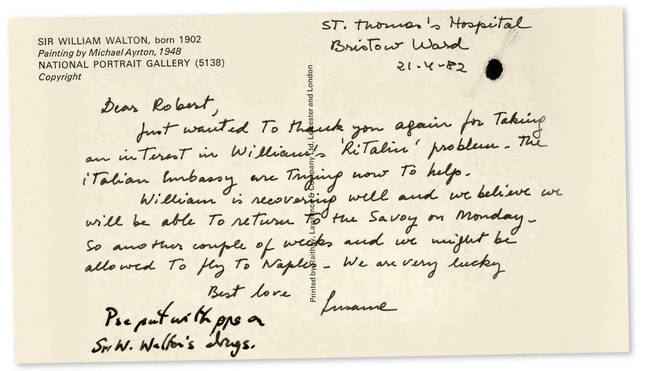 SIR WILLIAM WALTON, born 1902
Painting by Michael Ayrton, 1948
NATIONAL PORTRAIT GALLERY (5138)
Copyright
St. Thomas's Hospital
Bristow Ward
21-4-82
Dear Robert,
Just wanted to thank you again for taking
an interest in William's 'Ritalin' problem - The
italian Embassy are trying now to help.
William is recovering well and we believe we
will be able to return to the Savoy on Monday -
So another couple of weeks and we might be
allowed to fly to Naples - We are very lucky
Best love Susana
Pse put with pps on
Sir W. Walton's drugs.
Printed by Raithby, Lawrence & Company Ltd, Leicester and London